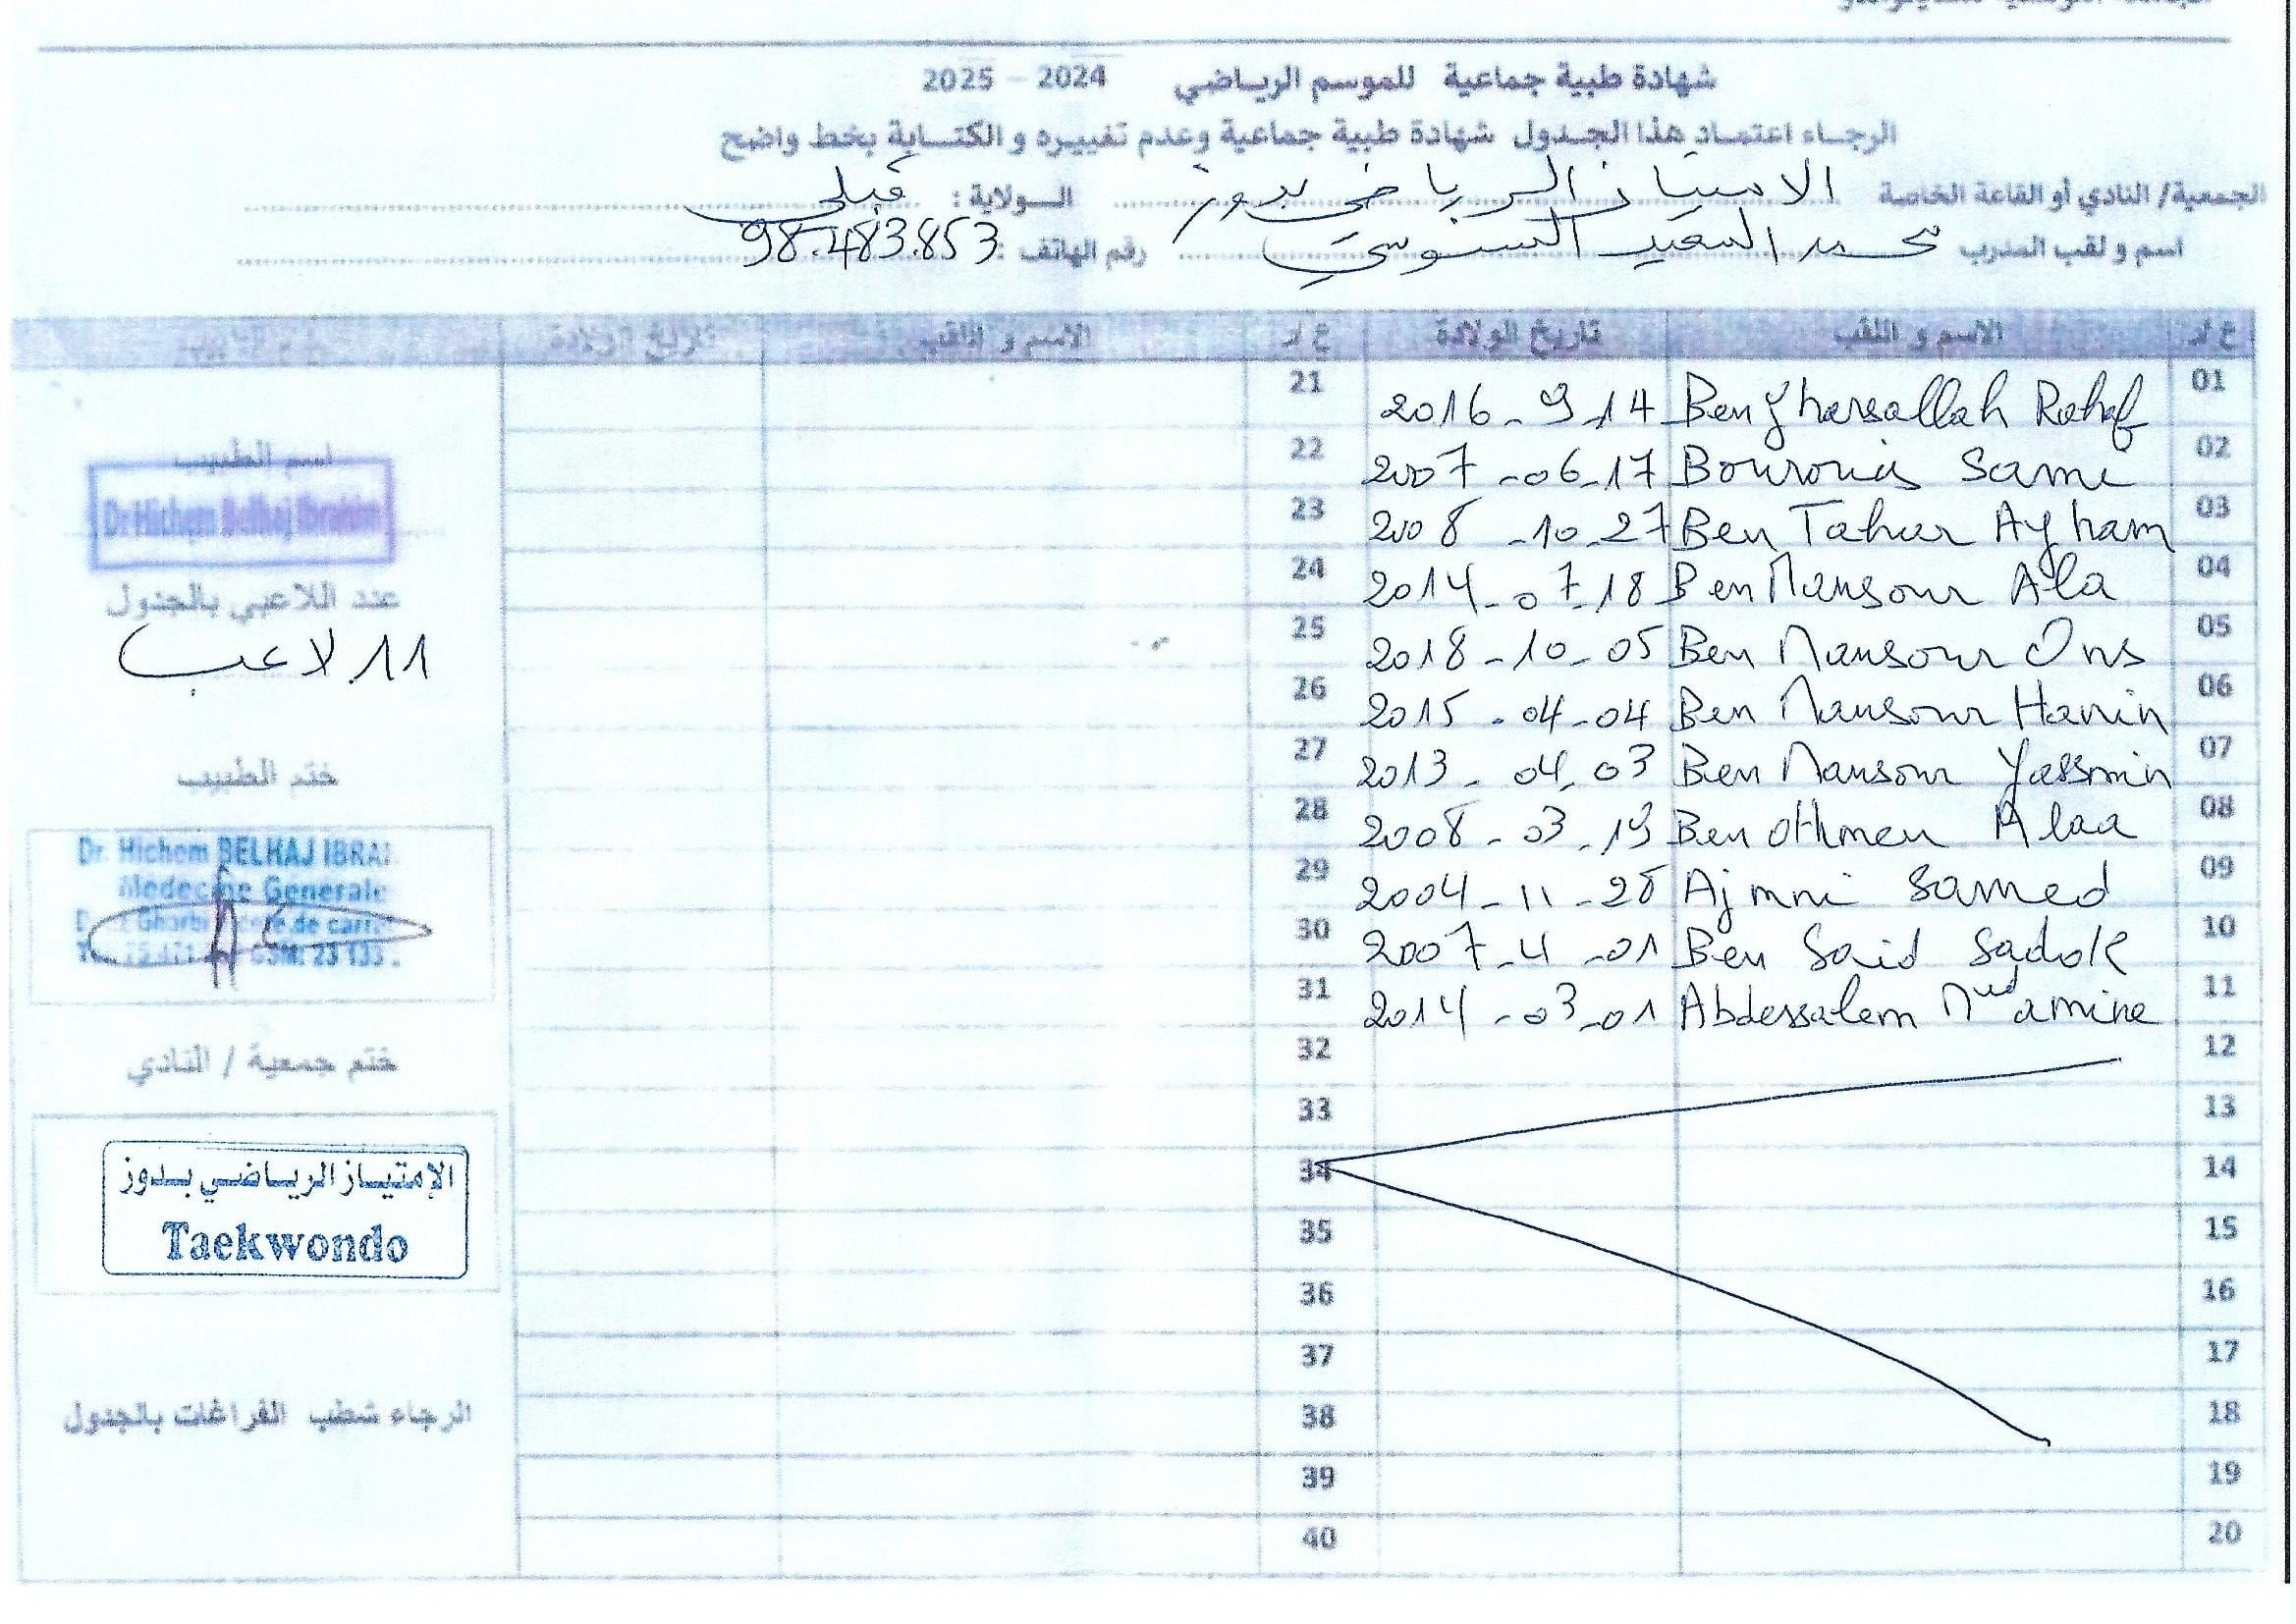 شهادة طبية جماعية للموسم الرياضي 2024 - 2025
الرجاء اعتماد هذا الجدول شهادة طبية جماعية وعدم تغييره و الكتابة بخط واضح
الجمعية/ النادي أو القاعة الخاصة الامتياز الرياضي بدوز الولاية : قبلي
اسم و لقب المدرب محمد السعيد السنوسي رقم الهاتف : 98.483.853
ع/ر الاسم و اللقب تاريخ الولادة ع/ر الاسم و اللقب تاريخ الولادة
01 Ben Gharsallah Rahaf 2016-9-14 21
02 Bourouis Sami 2007-06-17 22
03 Ben Tahar Ayham 2008-10-27 23
04 Ben Mansour Ala 2014-07-18 24
05 Ben Mansour Ons 2018-10-05 25
06 Ben Mansour Hanin 2015-04-04 26
07 Ben Mansour Yassmin 2013-04-03 27
08 Ben Othmen Alaa 2008-03-19 28
09 Ajmni Samed 2004-11-28 29
10 Ben Said Sadok 2007-4-01 30
11 Abdessalem Med amine 2014-03-01 31
12 32
13 33
14 34
15 35
16 36
17 37
18 38
19 39
20 40
اسم الطبيب
Dr Hichem Belhaj Ibrahim
عدد اللاعبي بالجدول
11 لاعب
ختم الطبيب
Dr. Hichem BELHAJ IBRAH
Medecine Generale
ختم جمعية / النادي
الإمتياز الرياضي بدوز
Taekwondo
الرجاء شطب الفراغات بالجدول